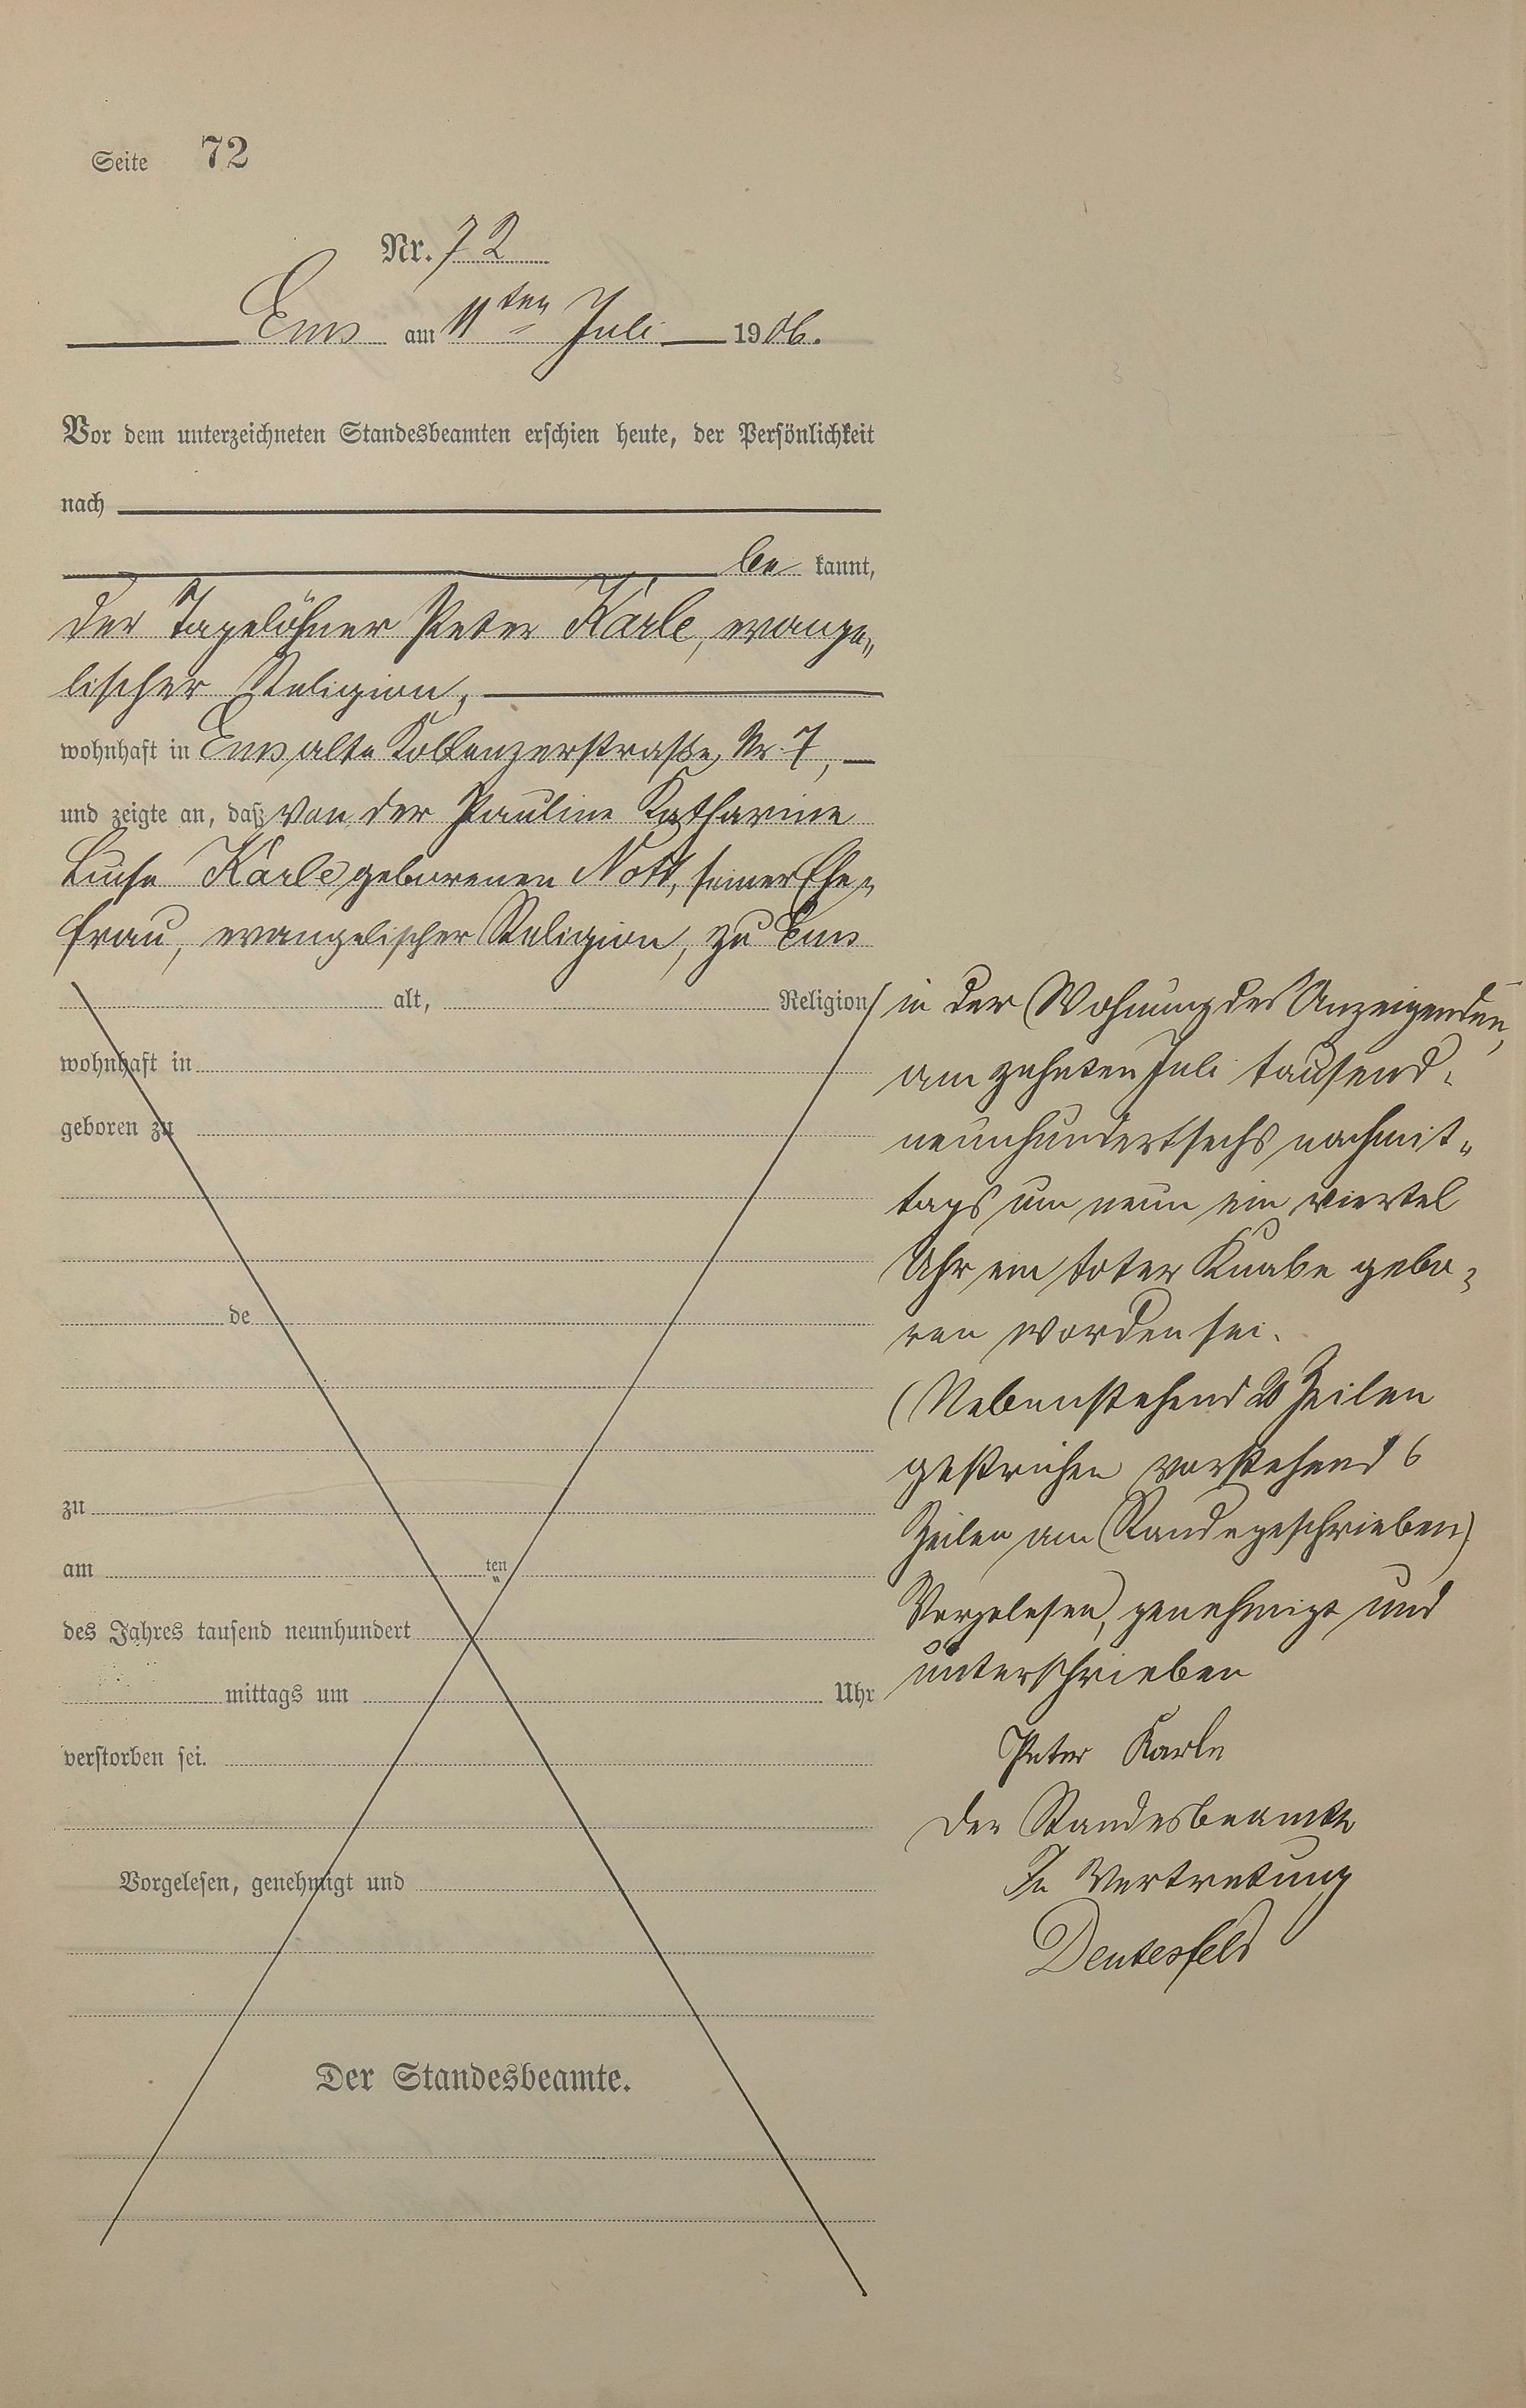 Seite 72
Nr. 72
Ems am 11ten Juli 1906.
Vor dem unterzeichneten Standesbeamten erschien heute, der Persönlichkeit
nach
be kannt,
der Tagelöhner Peter Karle, evange„
lischer Religion,
wohnhaft in Ems alte Koblenzerstraße Nr. 7,
und zeigte an, daß von der Pauline Katharine
Luise Karle geborenen Nott, seiner Ehe„
frau, evangelischer Religion, zu Ems
alt, Religion
wohnhaft in
geboren zu
de
zu
am ten
des Jahres tausend neunhundert
mittags um Uhr
verstorben sei.
Vorgelesen, genehmigt und
Der Standesbeamte.
in der Wohnung des Anzeigenden,
am zehnten Juli tausend„
neunhundertsechs nachmit„
tags um neun ein viertel
Uhr ein toter Knabe gebo„
ren worden sei.
(Nebenstehend 20 Zeilen
gestrichen vorstehend 6
Zeilen am Rande geschrieben)
Vorgelesen, genehmigt und
unterschrieben
Peter Karle
Der Standesbeamte
In Vertretung
Deutesfeld